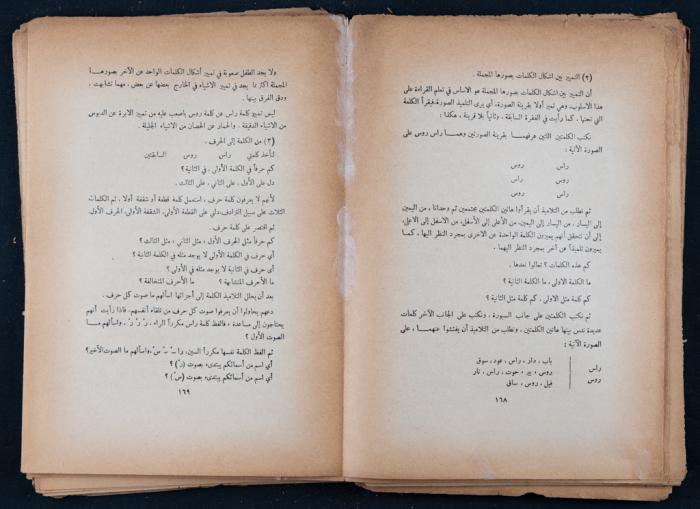 (٢) التمييز بين اشكال الكلمات بصورها المجملة .
أن التمييز بين اشكال الكلمات بصورها المجملة هو الاساس في تعلم القراءة على
هذا الاسلوب، وهي تميز أولا بقرينة الصورة، أي يرى التلميذ الصورة، فيقرأ الكلمة
التي تحتها ، كما رأيت في الفقرة السابقة ، وثانياً بلا قرينة ، هكذا :
نكتب الكلمتين اللتين عرفهما بقرينة الصورتين وهما راس روس على
الصورة الآتية :
راس روس
روس راس
راس روس
ثم نطلب من التلاميذ أن يقرأوا هاتين الكلمتين مجتمعتين ثم وحدانا ، من اليمين
إلى اليسار ، من اليسار إلى اليمين، من الأعلى إلى الأسفل، من الاسفل إلى الاعلى،
إلى أن نتحقق أنهم يميزون الكلمة الواحدة عن الاخرى بمجرد النظر اليها ، كما
يميزون تلميذاً عن آخر بمجرد النظر اليهما .
كم هذه الكلمات ؟ تعالوا نعدها .
ما الكلمة الاولى ، ما الكلمة الثانية ؟
كم كلمة مثل الاولى ، كم كلمة مثل الثانية ؟
ثم نكتب الكلمتين على جانب السبورة ، ونكتب على الجانب الآخر كلمات
عديدة ندس بينها هاتين الكلمتين ، ونطلب من التلاميذ أن يفتشوا عنهما ، على
الصورة الآتية :
راس باب ، دار ، راس ، عود ، سوق
روس ، بير ، حوت ، راس ، نار
روس فيل ، روس ، ساق
١٦٨
ولا يجد الطفل صعوبة في تمييز أشكال الكلمات الواحد عن الآخر بصورها
المجملة اكثر مما يجد في تمييز الاشياء في الخارج بعضها عن بعض ، مهما تشابهت ،
ودق الفرق بينها .
ليس تمييز كلمة راس عن كلمة روس باصعب عليه من تمييز الابرة عن الدبوس
من الاشياء الدقيقة ، والحمار عن الحصان من الاشياء الجليلة .
(٣) من الكلمة إلى الحرف .
لنأخذ كلمتي راس روس السابقتين
كم حرفاً في الكلمة الأولى ، في الثانية ؟
دل على الأول ، على الثاني ، على الثالث .
لأنهم لا يعرفون كلمة حرف ، استعمل كلمة قطعة أو شقفة أولا ، ثم الكلمات
الثلاث على سبيل الترادف، دلي على القطعة الأولى، الشقفة الأولى، الحرف الأول.
ثم اقتصر على كلمة حرف .
كم حرفاً مثل الحرف الأول ، مثل الثاني ، مثل الثالث ؟
أي حرف في الكلمة الأولى لا يوجد مثله في الكلمة الثانية ؟
أي حرف في الثانية لا يوجد مثله في الأولى ؟
ما الأحرف المتشابهة ؟ ما الأحرف المتخالفة ؟
بعد أن يحلل التلاميذ الكلمة إلى أجزائها اسألهم ما صوت كل حرف .
دعهم يحاولوا أن يعرفوا صوت كل حرف من تلقاء أنفسهم، فاذا رأيت أنهم
يحتاجون إلى مساعدة ، فالفظ كلمة راس مكرراً الراء ، رْ رْ رْ ، واسألهم ما
الصوت الأول ؟
ثم الفظ الكلمة نفسها مكرراً السين، راسْ سْ سْ، واسألهم ما الصوت الأخير؟
أي اسم من أسمائكم يبتدىء بصوت (رْ) ؟
أي اسم من أسمائكم يبتدىء بصوت (سْ) ؟
١٦٩